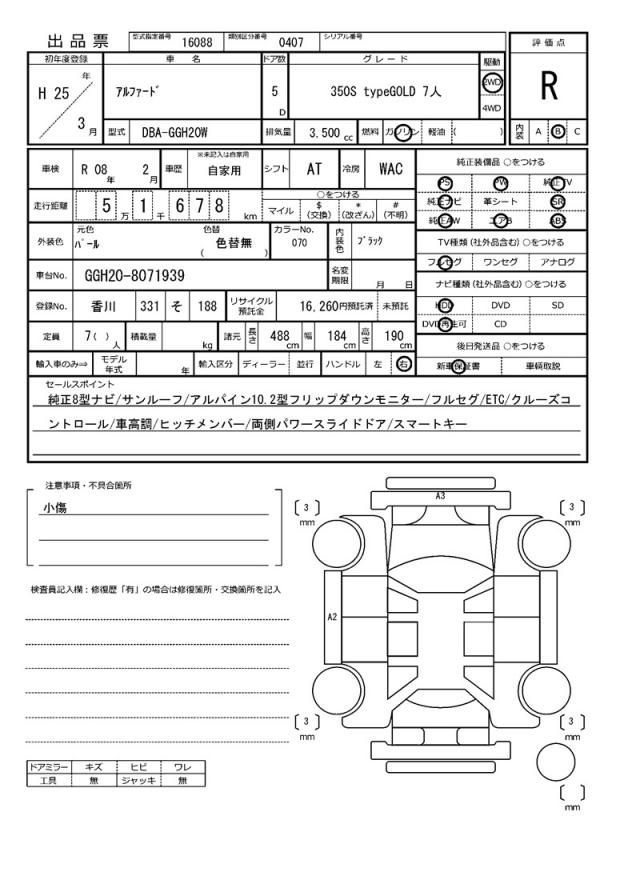 出品票 型式指定番号 16088 類別区分番号 0407 シリアル番号
初年度登録 車名 ドア数 グレード 駆動 評価点
H 25 年 3 月 アルファード 5 D 350S typeGOLD 7人 2WD 4WD R
型式 DBA-GGH20W 排気量 3,500 cc 燃料 ガソリン 軽油 ( ) 内装 A B C
車検 R 08 年 2 月 車歴 ※未記入は自家用 自家用 シフト AT 冷房 WAC
走行距離 5 万 1 千 6 7 8 km ○をつける マイル $ (交換) * (改ざん) # (不明)
外装色 元色 パール 色替 ( 色替無 ) カラーNo. 070 内装色 ブラック
車台No. GGH20-8071939 名変期限 月 日
登録No. 香川 331 そ 188 リサイクル預託金 16,260円預託済 未預託
定員 7( ) 人 積載量 kg 諸元 長さ 488 cm 幅 184 cm 高さ 190 cm
輸入車のみ⇒ モデル年式 年 輸入区分 ディーラー 並行 ハンドル 左 右
純正装備品 ○をつける
PS PW 純正TV
純正ナビ 革シート SR
純正AW エアB ABS
TV種類 (社外品含む) ○をつける
フルセグ ワンセグ アナログ
ナビ種類 (社外品含む) ○をつける
HDD DVD SD
DVD再生可 CD
後日発送品 ○をつける
新車保証書 車輌取説
セールスポイント
純正8型ナビ/サンルーフ/アルパイン10.2型フリップダウンモニター/フルセグ/ETC/クルーズコ
ントロール/車高調/ヒッチメンバー/両側パワースライドドア/スマートキー
注意事項・不具合箇所
小傷
検査員記入欄：修復歴「有」の場合は修復箇所・交換箇所を記入
ドアミラー キズ ヒビ ワレ
工具 無 ジャッキ 無
A3
[ 3 ] mm [ 3 ] mm
A2
[ 3 ] mm [ 3 ] mm
[ ] mm